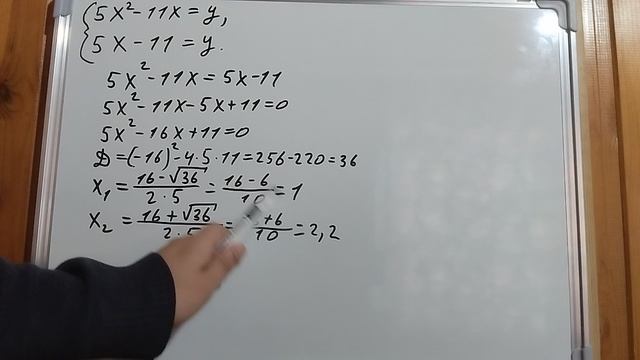 5x² - 11x = y,
5x - 11 = y.
5x² - 11x = 5x - 11
5x² - 11x - 5x + 11 = 0
5x² - 16x + 11 = 0
D = (-16)² - 4·5·11 = 256 - 220 = 36
x₁ = (16 - √36)/(2·5) = (16 - 6)/10 = 1
x₂ = (16 + √36)/(2·5) = +6/10 = 2,2